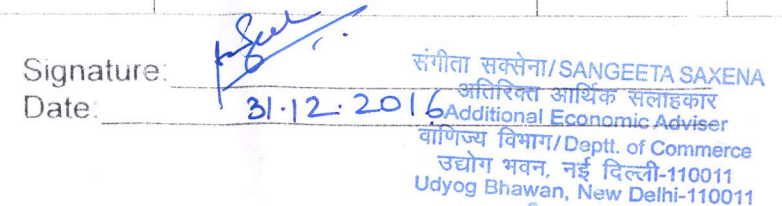 Signature:
Date: 31.12.2016
संगीता सक्सेना/SANGEETA SAXENA
अतिरिक्त आर्थिक सलाहकार
Additional Economic Adviser
वाणिज्य विभाग/Deptt. of Commerce
उद्योग भवन, नई दिल्ली-110011
Udyog Bhawan, New Delhi-110011